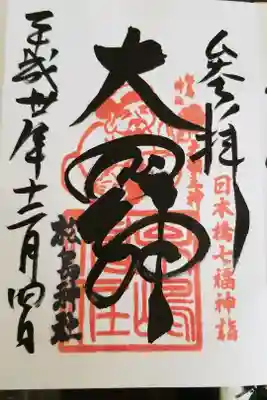 参拝
日本橋七福神詣
大国神
松島神社
平成卅年十二月四日